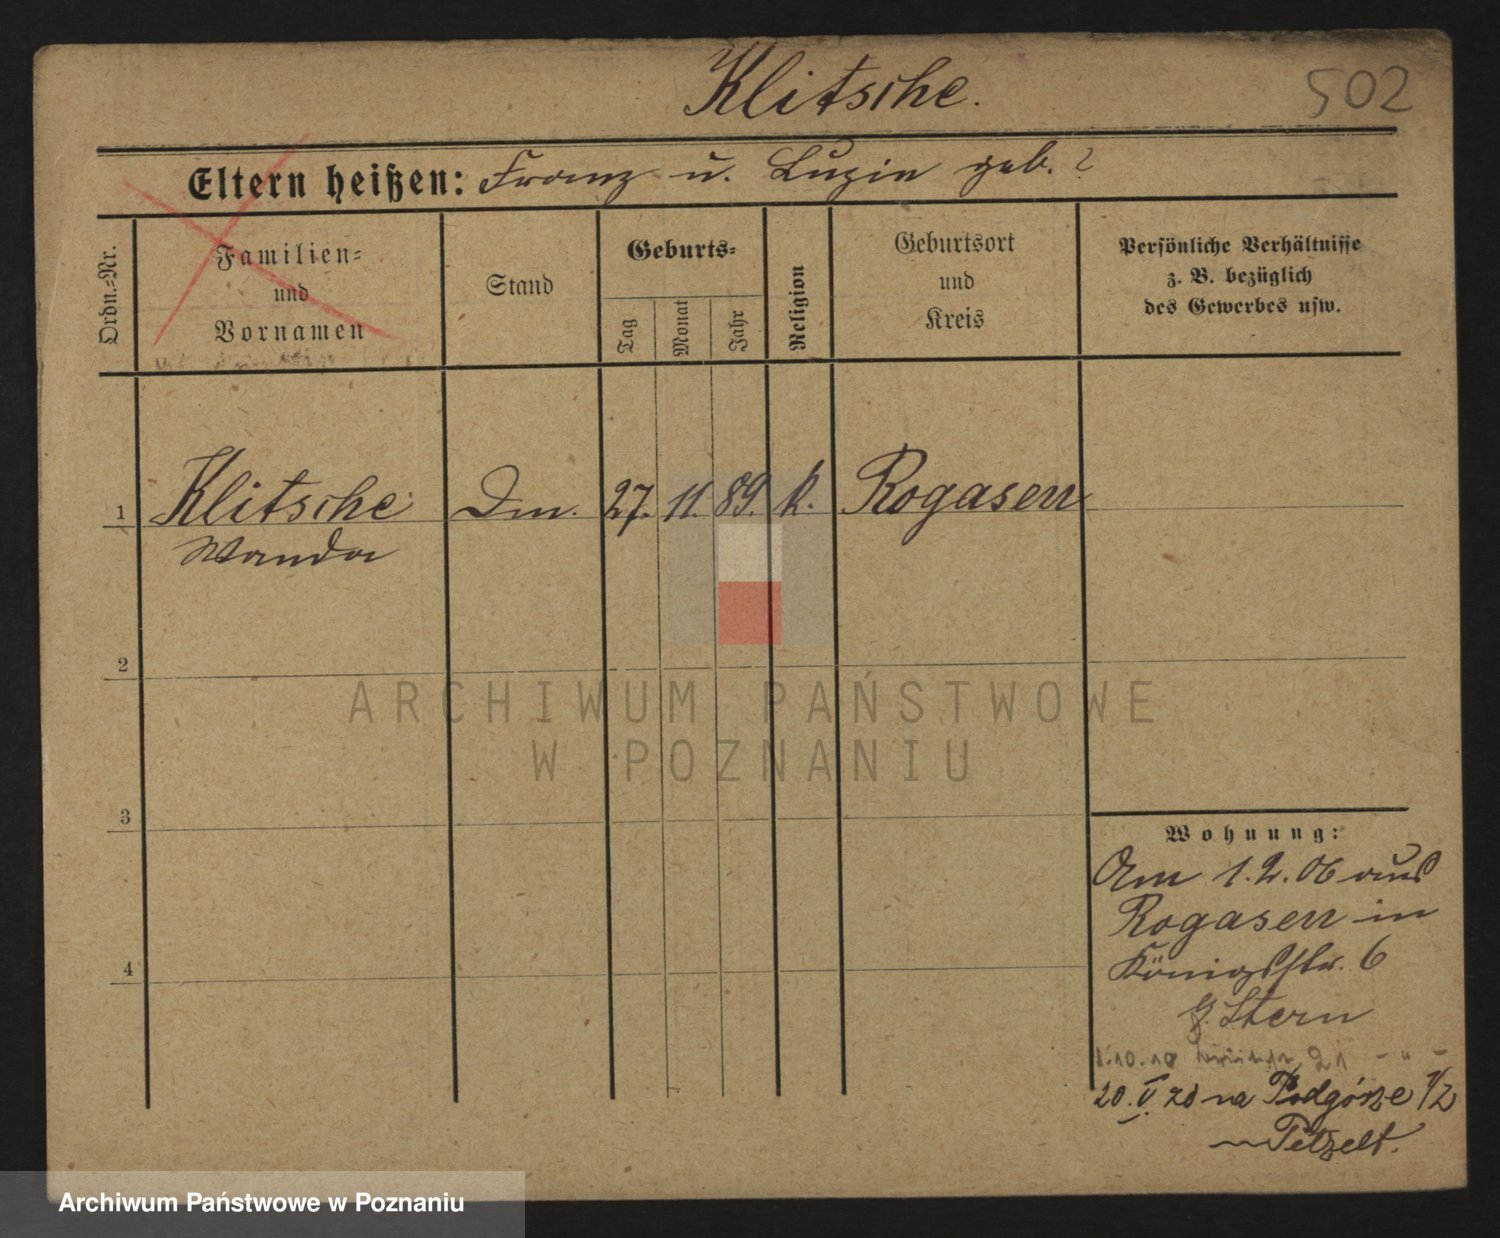 Klitsche.
502
Eltern heißen: Franz u. Luzin geb. ?
Ordn.=Nr.
Familien=
und
Vornamen
Stand
Geburts=
Tag
Monat
Jahr
Religion
Geburtsort
und
Kreis
Persönliche Verhältnisse
z. B. bezüglich
des Gewerbes usw.
1 Klitsche Dm. 27. 11. 89. k. Rogasen
Wanda
2
3
4
Wohnung:
Am 1.2.06 aus
Rogasen in
Königsstr. 6
b. Stern
1.10.10 21 - " -
20. V. 20 na Podgórze 1/2
Petzelt.
ARCHIWUM PAŃSTWOWE
W POZNANIU
Archiwum Państwowe w Poznaniu